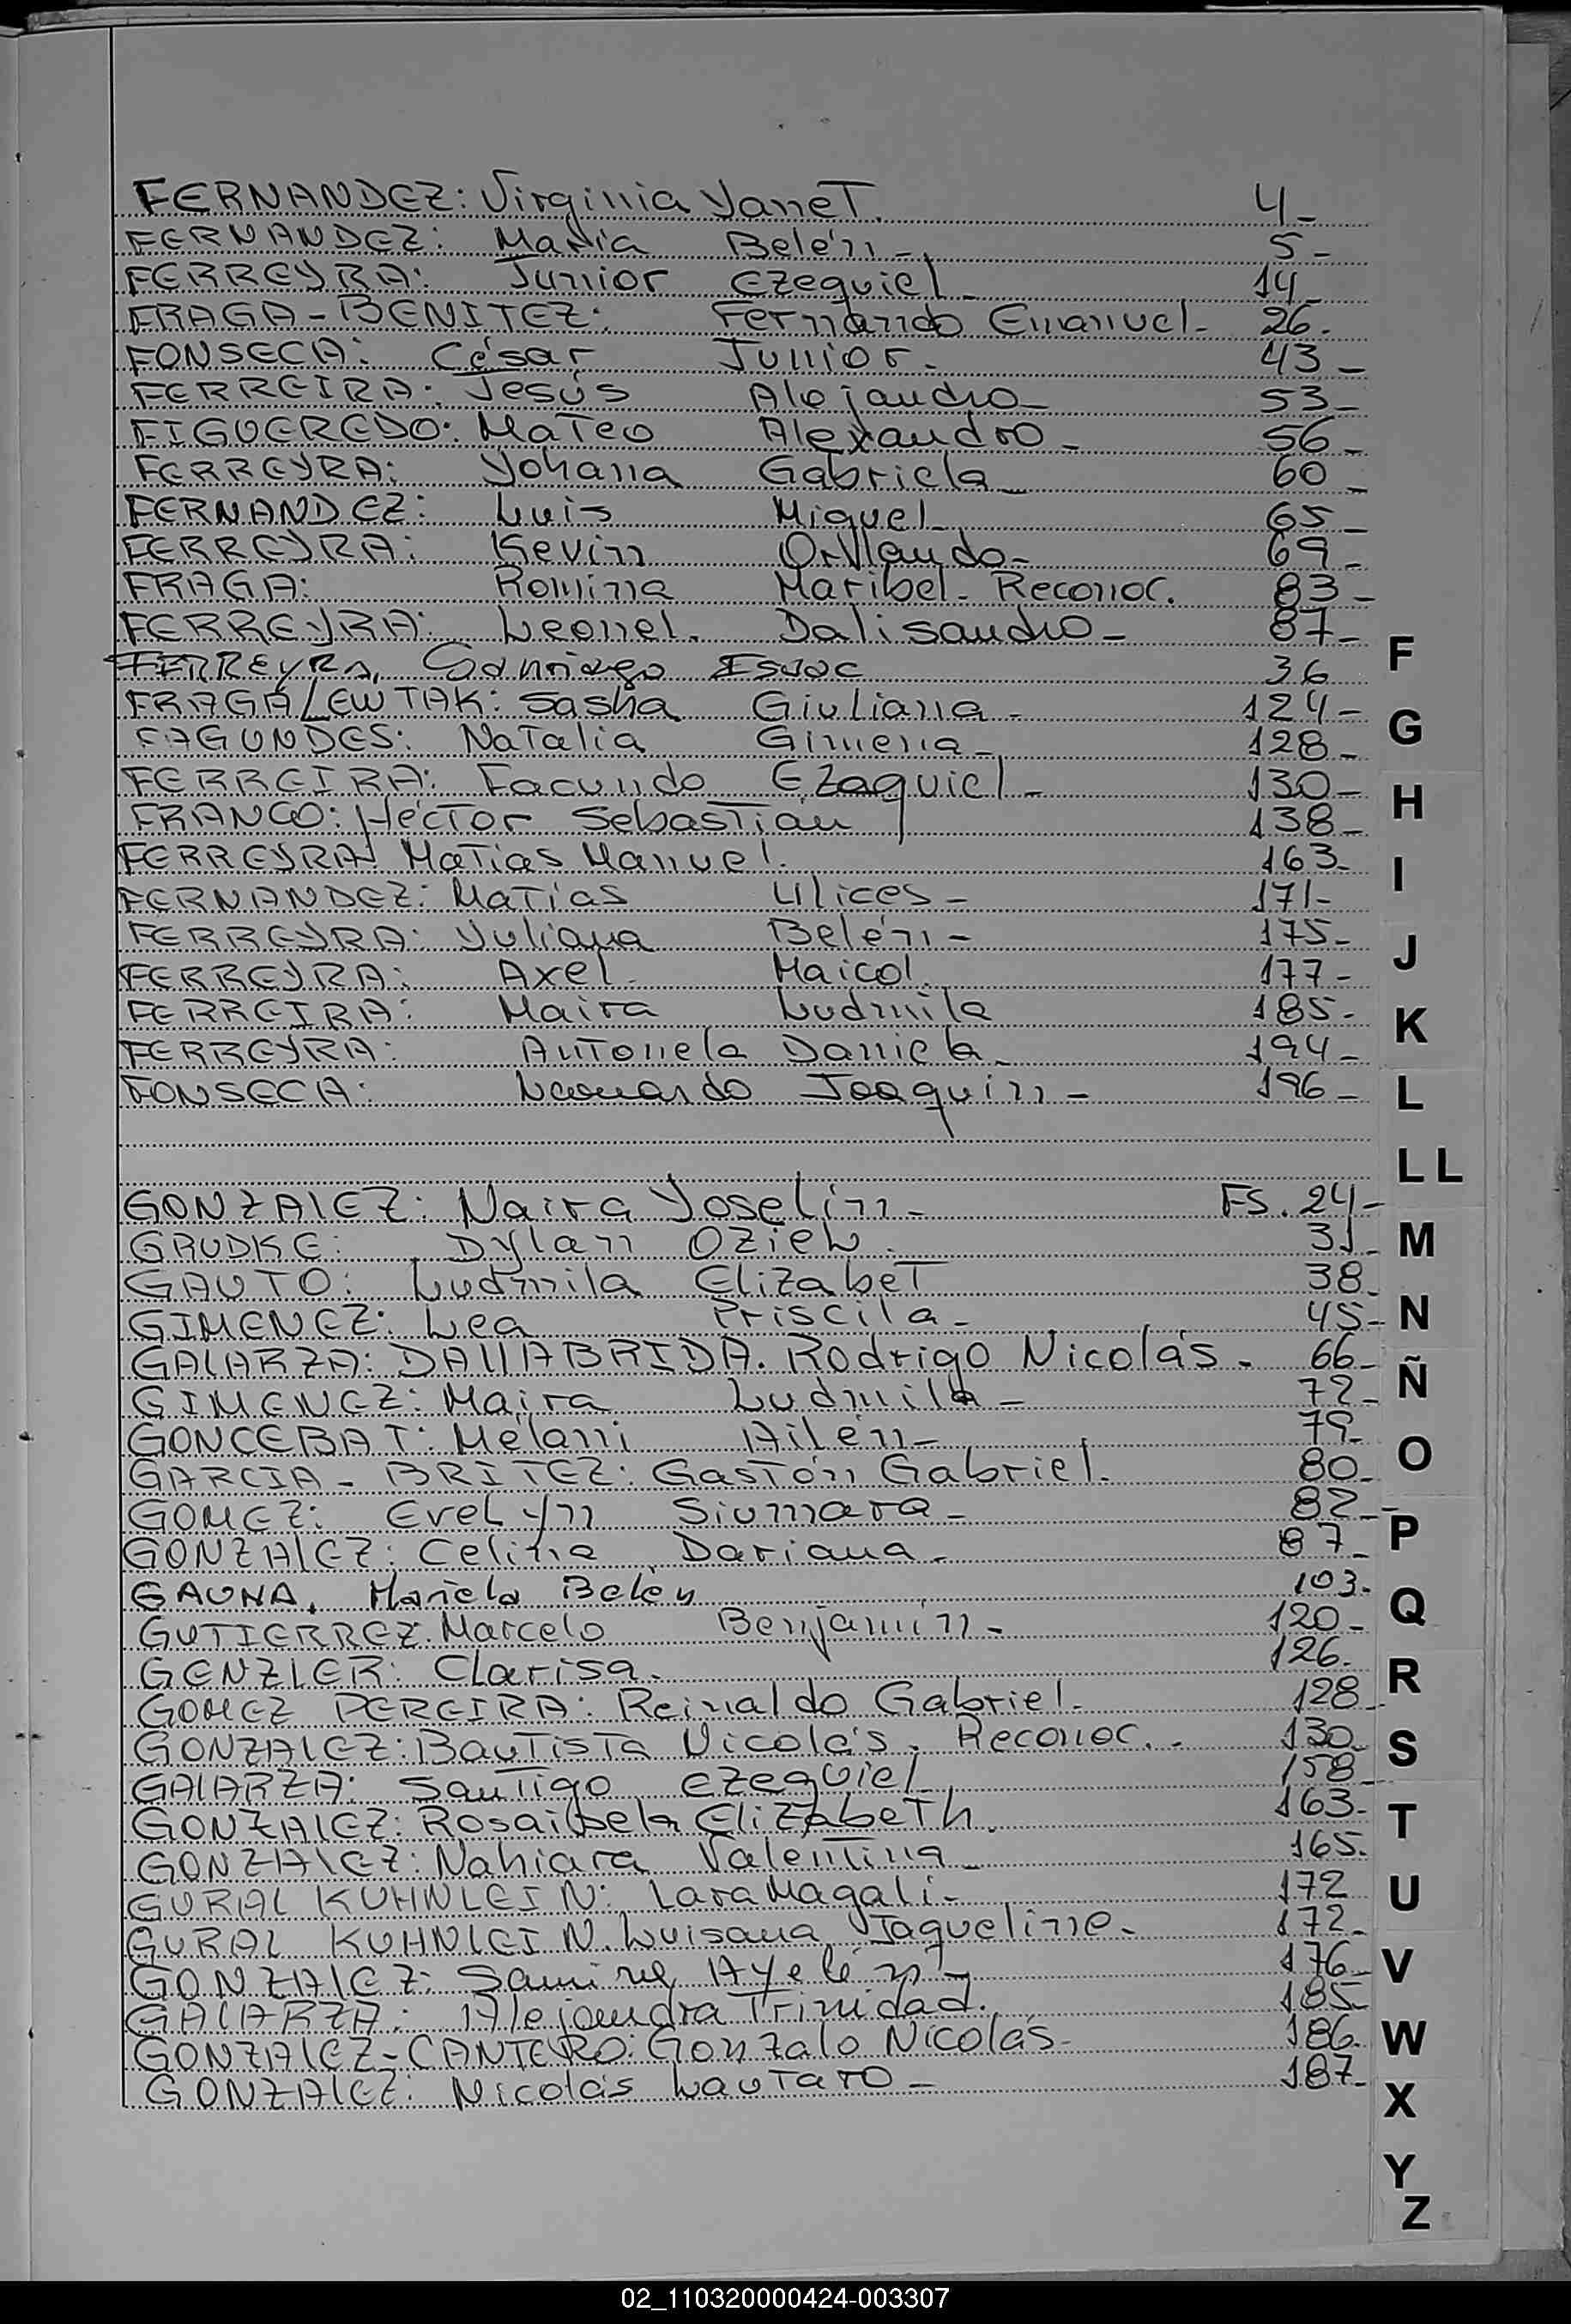 FERNANDEZ: Virginia YaneT. 4-
FERNANDEZ: María Belén- 5-
FERREYRA: Junior Ezequiel- 14-
FRAGA-BENITEZ: Fernando Emanuel- 26-
FONSECA: César Junior. 43-
FERREIRA: Jesús Alejandro- 53-
FIGUEREDO: Mateo Alexandro- 56-
FERREYRA: Yohana Gabriela- 60-
FERNANDEZ: Luis Miguel- 65-
FERREYRA: Kevin Orlando- 69-
FRAGA: Romina Maribel- Reconoc. 83-
FERREYRA: Leonel. Dalisandro- 87-
FERREYRA, Santiago Isaac 36
FRAGA/LEWTAK: Sasha Giuliana- 124-
FAGUNDES: Natalia Gimena- 128-
FERREIRA: Facundo Ezaquiel- 130-
FRANCO: Héctor Sebastián 138-
FERREYRA: Matías Manuel. 163-
FERNANDEZ: Matías Ulices- 171-
FERREYRA: Yuliana Belén- 175-
FERREYRA: Axel. Maicol. 177-
FERREIRA: Maira Ludmila 185-
FERREYRA: Antonela Daniela- 194-
FONSECA: Leonardo Joaquin- 196-
GONZALEZ: Naira Yoselin- FS. 24-
GRUDKE: Dylan Oziel. 31-
GAUTO: Ludmila ElizabeT 38-
GIMENEZ: Lea Priscila- 45-
GALARZA: DALLABRIDA. Rodrigo Nicolás. 66-
GIMENEZ: Maira Ludmila- 72-
GONCEBAT: Mélani Ailén- 79-
GARCIA-BRITEZ: Gastón Gabriel. 80-
GOMEZ: Evelyn Siomara- 82-
GONZALEZ: Celina Dariana. 87-
GAUNA, Mariela Belén 103-
GUTIERREZ: Marcelo Benjamín- 120-
GENZLER: Clarisa. 126.
GOMEZ PEREIRA: Reinaldo Gabriel. 128-
GONZALEZ: Bautista Nicolás. Reconoc.- 130-
GALARZA: Santigo Ezequiel 158-
GONZALEZ: Elizabeth. 163-
GONZALEZ: Nahiara Valentina- 165.
GURAL KUHNLEIN: Lara Magali- 172
GURAL KUHNLEIN. Luisana Jaqueline. 172-
GONZALEZ: Ayelén- 176-
GALARZA: Alejandra Trinidad. 185-
GONZALEZ-CANTERO: Gonzalo Nicolás- 186.
GONZALEZ: Nicolás Lautaro- 187-
F
G
H
I
J
K
L
LL
M
N
Ñ
O
P
Q
R
S
T
U
V
W
X
Y
Z
02_110320000424-003307